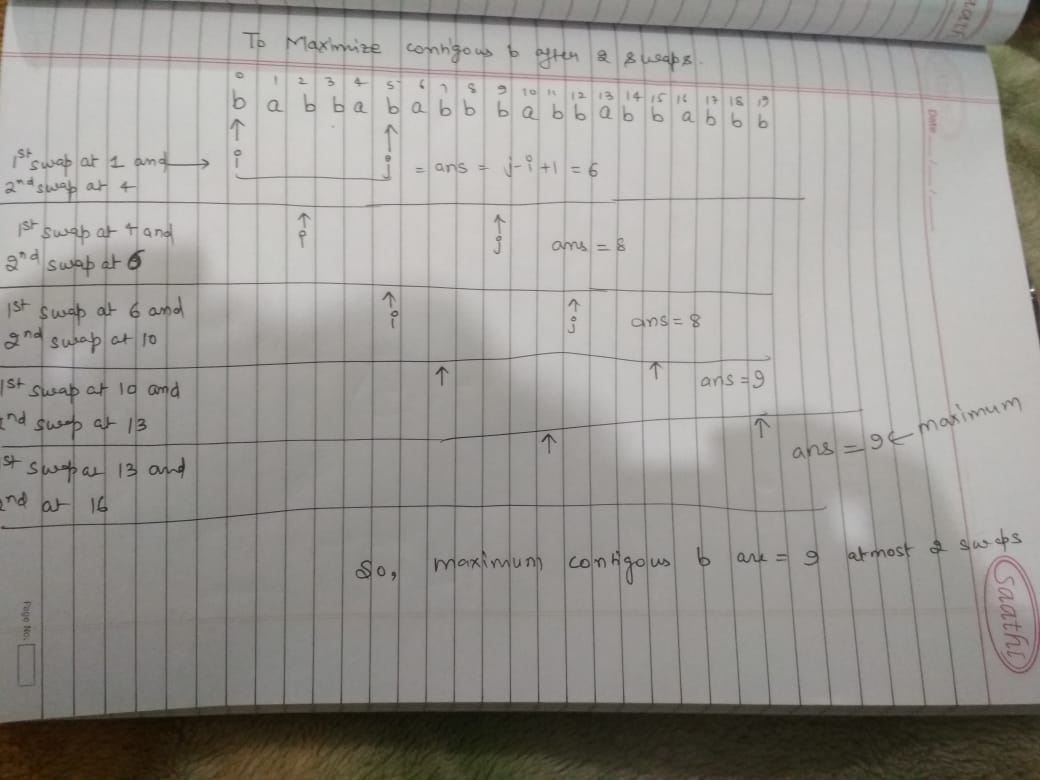 To Maximize contigous b after 2 swaps.
0 1 2 3 4 5 6 7 8 9 10 11 12 13 14 15 16 17 18 19
b a b b a b a b b b a b b a b b a b b b
1st swap at 1 and → i j = ans = j-i+1 = 6
2nd swap at 4
1st swap at 4 and i j ans = 8
2nd swap at 6
1st swap at 6 and i j ans = 8
2nd swap at 10
1st swap at 10 and ans = 9
2nd swap at 13
st swap at 13 and ans = 9 ← maximum
2nd at 16
So, maximum contigous b are = 9 atmost 2 swaps
Saathi
Page No.
Date